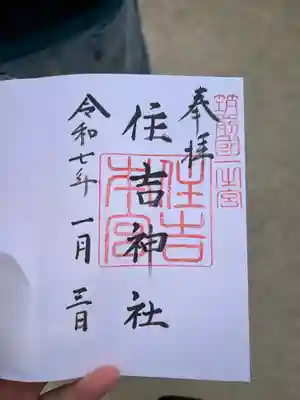 筑前國一之宮
奉拝
住吉神社
住吉本宮
令和七年 一月 三日